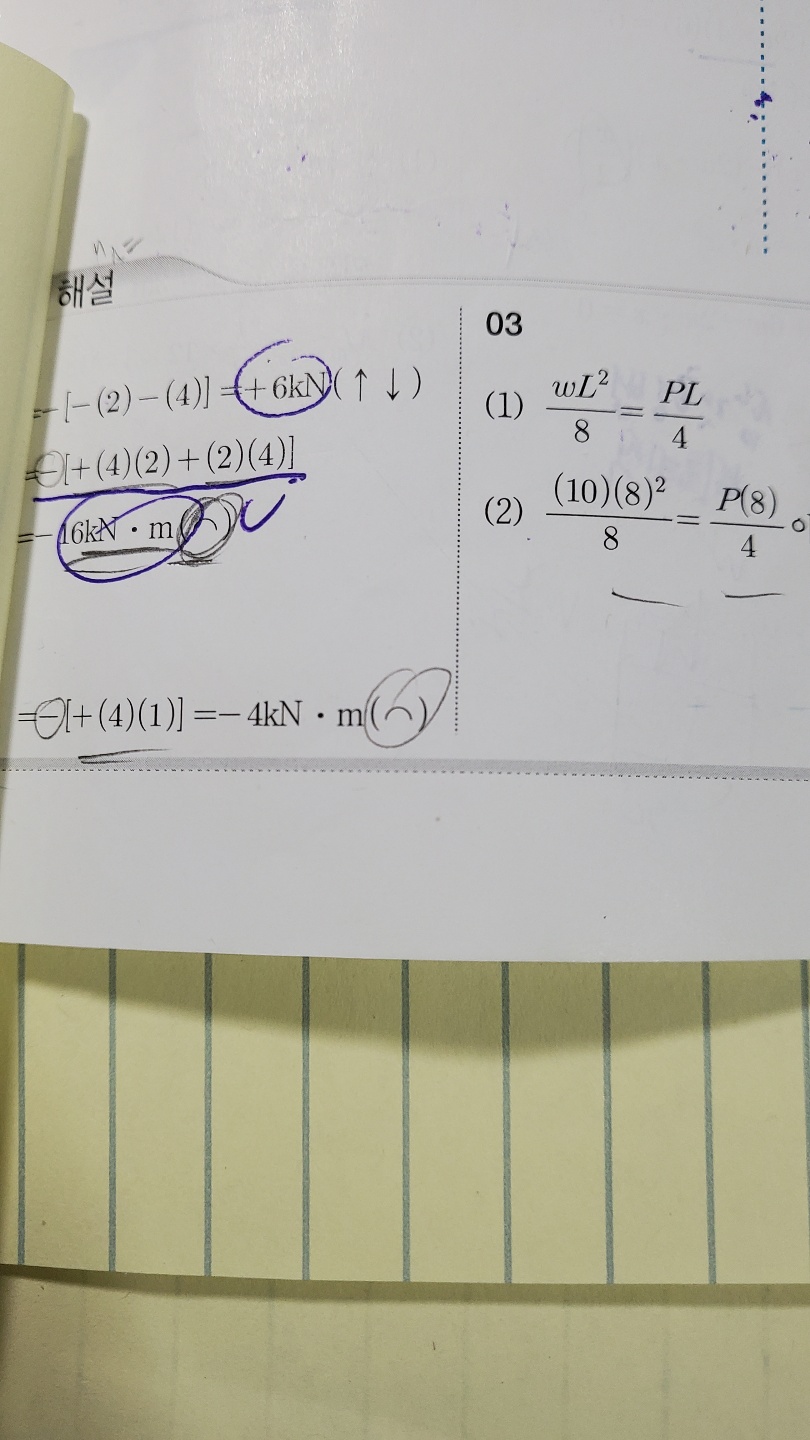 해설
=-[-(2)-(4)]=+6kN(↑↓)
=-[+(4)(2)+(2)(4)]
=-16kN·m(⌢)
=-[+(4)(1)]=-4kN·m(⌢)
03
(1) wL²/8 = PL/4
(2) (10)(8)²/8 = P(8)/4